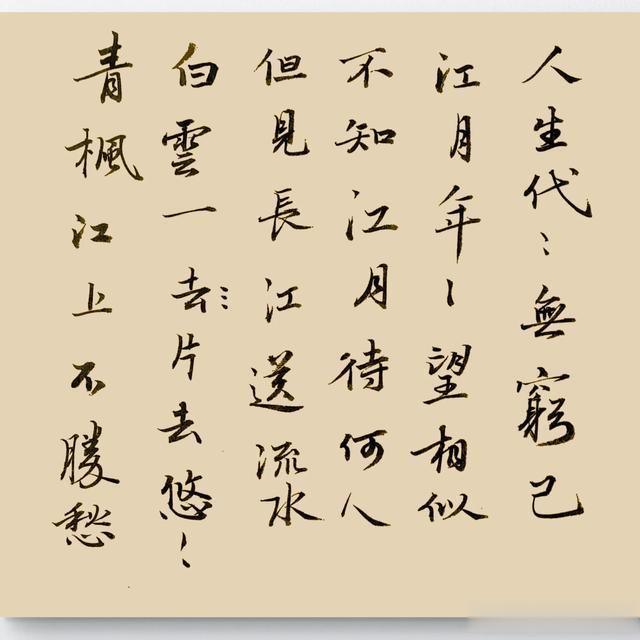 人生代〻無窮已
江月年〻望相似
不知江月待何人
但見長江送流水
白雲一去片去悠〻
青楓江上不勝愁